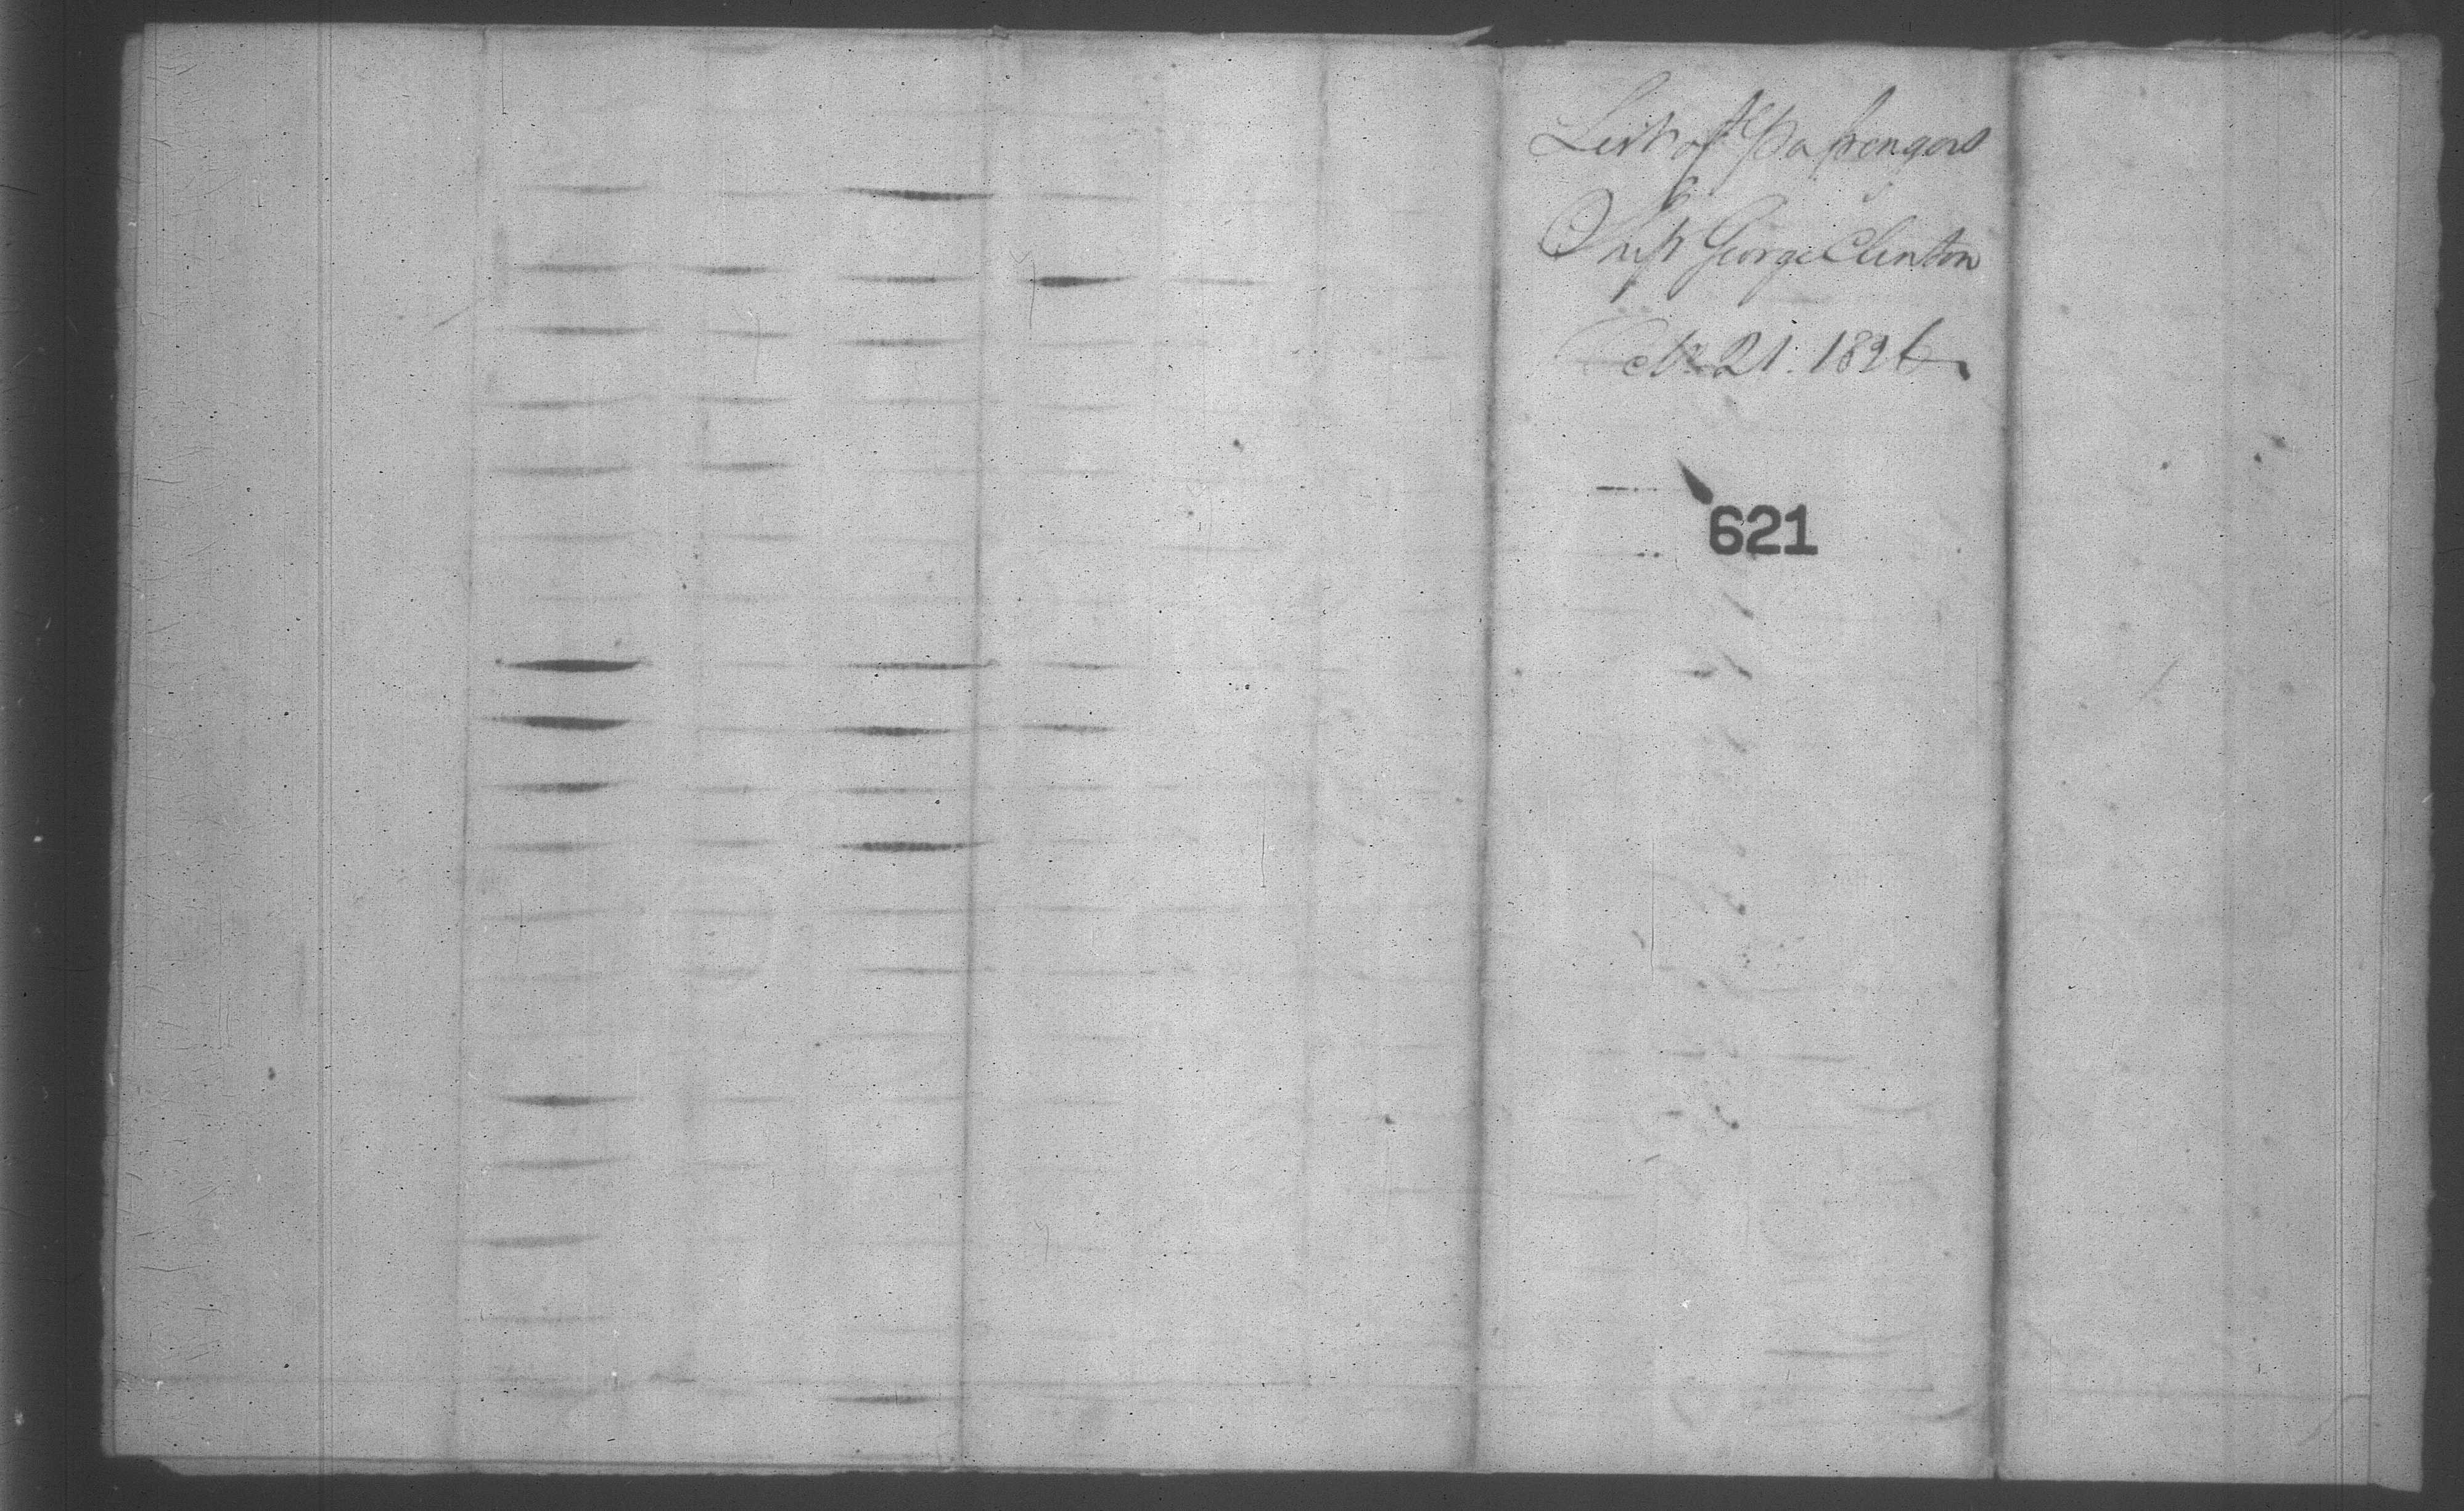 List of Passengers
Ship George Clinton
Octr 21. 1826
621